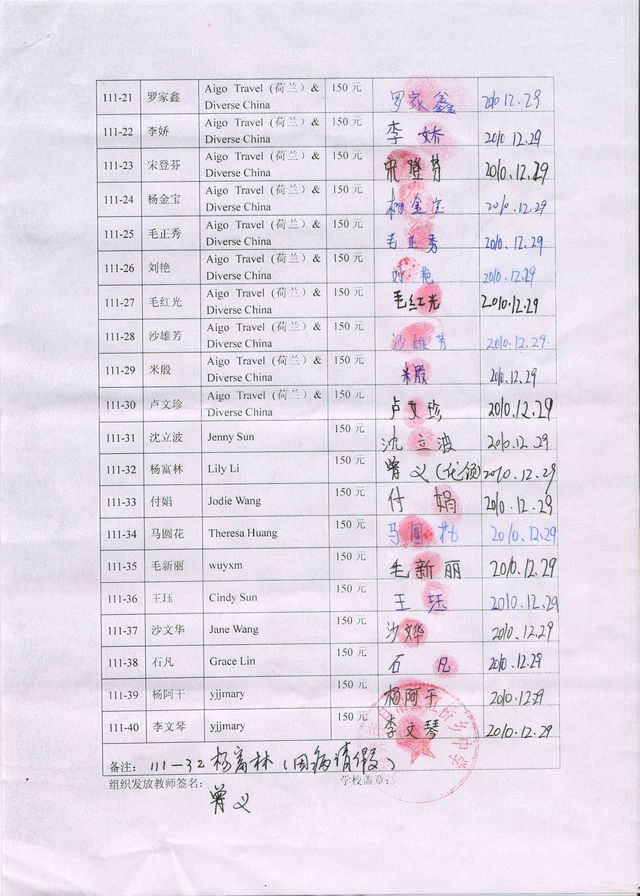 111-21 罗家鑫 Aigo Travel (荷兰) & Diverse China 150 元 罗家鑫 2010.12.29
111-22 李娇 Aigo Travel (荷兰) & Diverse China 150 元 李娇 2010.12.29
111-23 宋登芬 Aigo Travel (荷兰) & Diverse China 150 元 宋登芬 2010.12.29
111-24 杨金宝 Aigo Travel (荷兰) & Diverse China 150 元 杨金宝 2010.12.29
111-25 毛正秀 Aigo Travel (荷兰) & Diverse China 150 元 毛正秀 2010.12.29
111-26 刘艳 Aigo Travel (荷兰) & Diverse China 150 元 刘艳 2010.12.29
111-27 毛红光 Aigo Travel (荷兰) & Diverse China 150 元 毛红光 2010.12.29
111-28 沙雄芳 Aigo Travel (荷兰) & Diverse China 150 元 沙雄芳 2010.12.29.
111-29 米殷 Aigo Travel (荷兰) & Diverse China 150 元 米殷 2010.12.29
111-30 卢文珍 Aigo Travel (荷兰) & Diverse China 150 元 卢文珍 2010.12.29
111-31 沈立波 Jenny Sun 150 元 沈立波 2010.12.29
111-32 杨富林 Lily Li 150 元 曾义(代领) 2010.12.29
111-33 付娟 Jodie Wang 150 元 付娟 2010.12.29
111-34 马圆花 Theresa Huang 150 元 马圆花 2010.12.29
111-35 毛新丽 wuyxm 150 元 毛新丽 2010.12.29
111-36 王珏 Cindy Sun 150 元 王珏 2010.12.29
111-37 沙文华 Jane Wang 150 元 沙文华 2010.12.29
111-38 石凡 Grace Lin 150 元 石凡 2010.12.29
111-39 杨阿干 yjjmary 150 元 杨阿干 2010.12.29
111-40 李文琴 yjjmary 150 元 李文琴 2010.12.29
备注: 111-32杨富林(因病请假)
组织发放教师签名: 学校盖章:
曾义